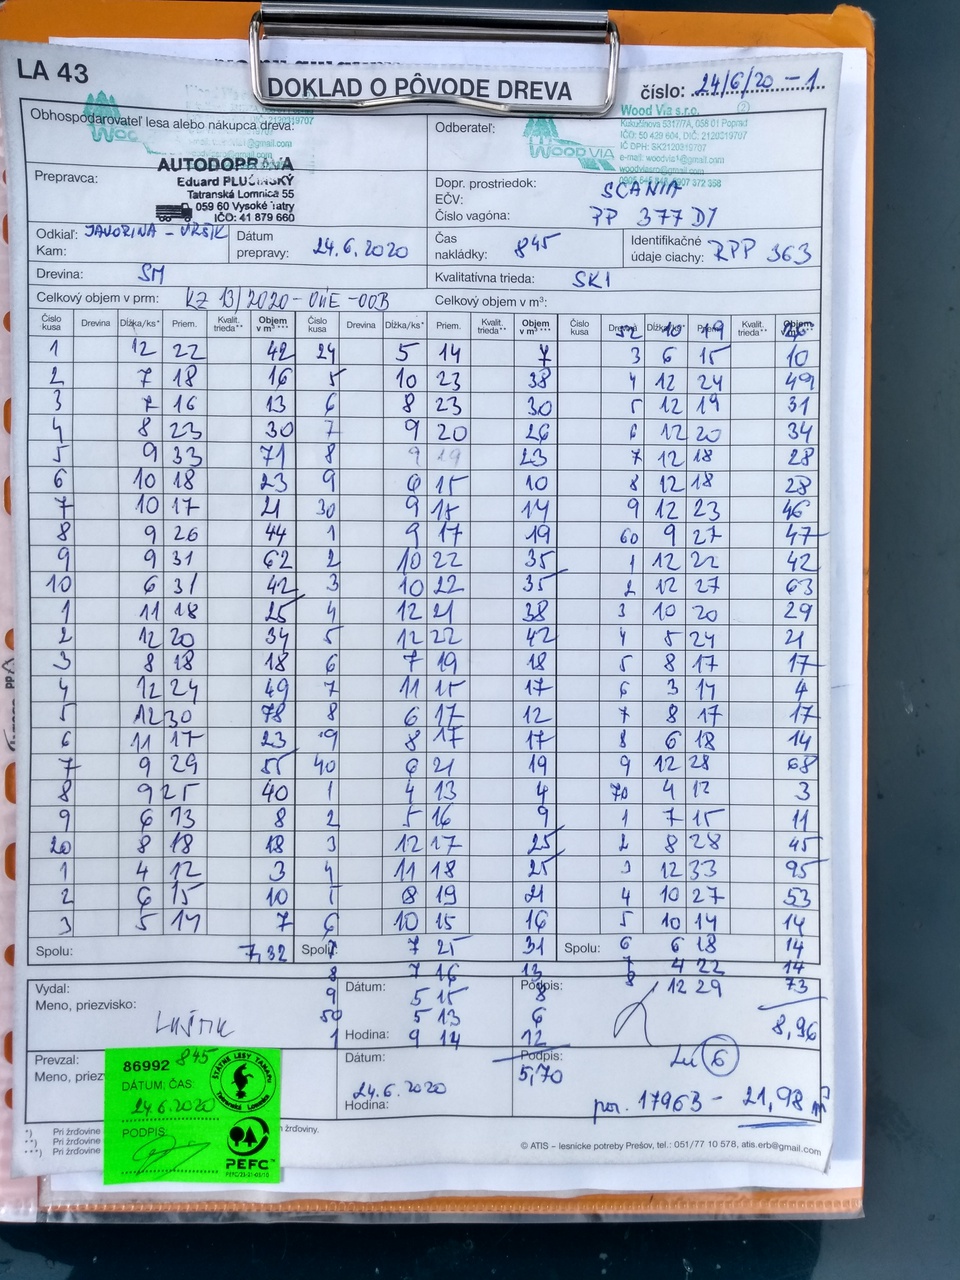 LA 43
DOKLAD O PÔVODE DREVA
číslo: 24/6/20 - 1
Obhospodarovateľ lesa alebo nákupca dreva:
Odberateľ:
Wood Via s.r.o.
Kukučínova 5317/7A, 058 01 Poprad
IČO: 50 429 604, DIČ: 2120319707
IČ DPH: SK2120319707
WOOD VIA
Prepravca:
AUTODOPRAVA
Eduard PLUČINSKÝ
Tatranská Lomnica 55
059 60 Vysoké Tatry
IČO: 41 879 660
Dopr. prostriedok: SCANIA
EČV:
Číslo vagóna: PP 377 DY
Odkiaľ: JAVORINA - VRŠIK
Kam:
Dátum prepravy: 24.6.2020
Čas nakládky: 845
Identifikačné údaje ciachy: RPP 363
Drevina: SM
Kvalitatívna trieda: SKI
Celkový objem v prm: KZ 13/2020-
Celkový objem v m³:
Číslo kusa Drevina Dĺžka/ks* Priem. Kvalit. trieda** Objem v m³*** Číslo kusa Drevina Dĺžka/ks* Priem. Kvalit. trieda** Objem v m³*** Číslo kusa Drevina Dĺžka/ks* Priem. Kvalit. trieda** Objem
52 10 19 26
1 12 22 42 24 5 14 7 3 6 15 10
2 7 18 16 5 10 23 38 4 12 24 49
3 7 16 13 6 8 23 30 5 12 19 31
4 8 23 30 7 9 20 26 6 12 20 34
5 9 33 71 8 9 19 23 7 12 18 28
6 10 18 23 9 6 15 10 8 12 18 28
7 10 17 21 30 9 15 14 9 12 23 46
8 9 26 44 1 9 17 19 60 9 27 47
9 9 31 62 2 10 22 35 1 12 22 42
10 6 31 42 3 10 22 35 2 12 27 63
1 11 18 25 4 12 21 38 3 10 20 29
2 12 20 34 5 12 22 42 4 5 24 21
3 8 18 18 6 7 19 18 5 8 17 17
4 12 24 49 7 11 15 17 6 3 14 4
5 12 30 78 8 6 17 12 7 8 17 17
6 11 17 23 9 8 17 17 8 6 18 14
7 9 29 55 40 6 21 19 9 12 28 68
8 9 25 40 1 4 13 4 70 4 12 3
9 6 13 8 2 5 16 9 1 7 15 11
20 8 18 18 3 12 17 25 2 8 28 45
1 4 12 3 4 11 18 25 3 12 33 95
2 6 15 10 5 8 19 21 4 10 27 53
3 5 14 7 6 10 15 16 5 10 14 14
Spolu: 7,32 Spolu: 7 7 25 31 Spolu: 6 6 18 14
8 7 16 13 7 4 22 14
Vydal: Dátum: 9 5 15 Podpis: 8 8 12 29 73
Meno, priezvisko: 50 5 13 6 8,96
Hodina: 1 9 14 12
Prevzal: Dátum: Podpis: 5,70
Meno, 24.6.2020
Hodina:
6
por. 1796B - 21,98 m³
86992 845
DÁTUM, ČAS:
24.6.2020
PODPIS:
ŠTÁTNE LESY TANAPu
Tatranská Lomnica
PEFC
*) Pri žrďovine
**) Pri žrďovine
***) Pri žrďovine
žrďoviny.
© ATIS – lesnícke potreby Prešov, tel.: 051/77 10 578, atis.erb@gmail.com